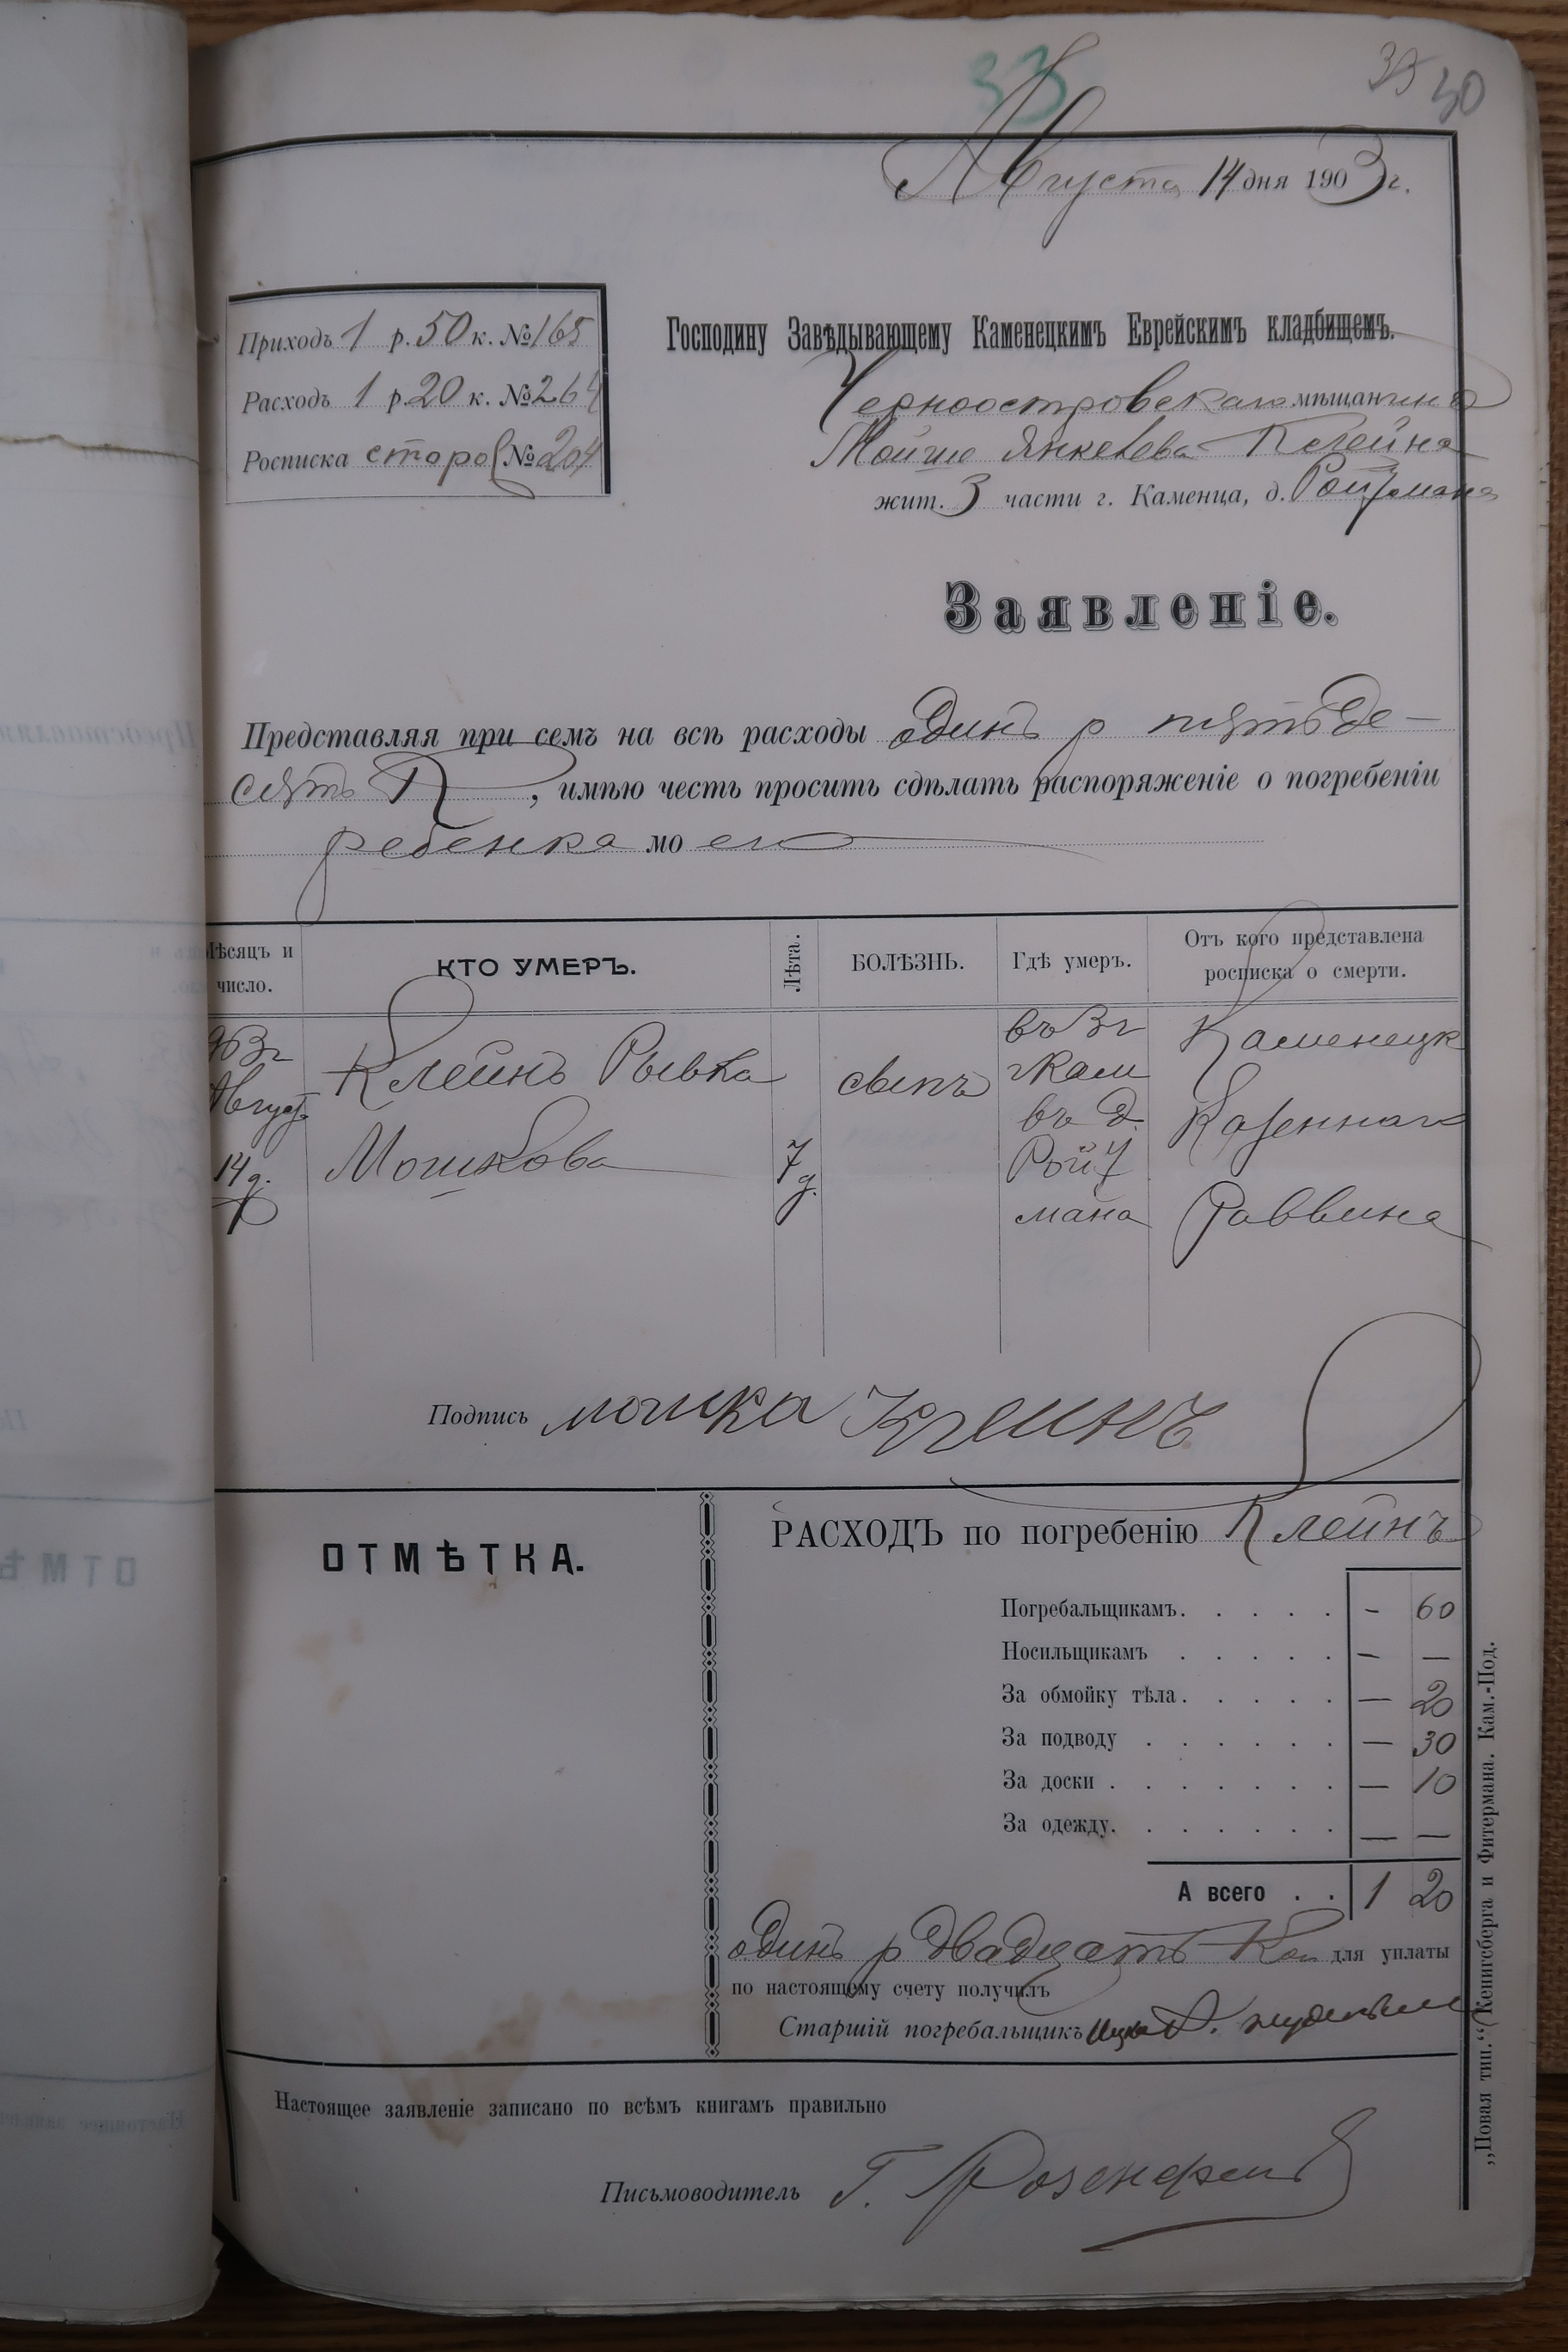 33
35 30
Августа 14 дня 1903 г.
Приходъ 1 р. 50 к. № 165
Расходъ 1 р. 20 к. № 264
Росписка сторо № 204
Господину Завѣдывающему Каменецкимъ Еврейскимъ кладбищемъ.
Черноостровскаго мѣщанина
Мойше Янкелева Клейна
жит. 3 части г. Каменца, д. Ройзмана
Заявленіе.
Представляя при семъ на всѣ расходы одинъ р пятьде-
сятъ к, имѣю честь просить сдѣлать распоряженіе о погребеніи
ребенка моего
Мѣсяцъ и число.
КТО УМЕРЪ.
Лѣта.
БОЛѢЗНЬ.
Гдѣ умеръ.
Отъ кого представлена росписка о смерти.
903г Август 14 д.
Клейнъ Рывка
Мошкова
7 д.
сыпъ
въ 3 ч
г Кам
въ д.
Ройз
мана
Каменецк
Казеннаго
Раввина
Подпись мошка Клеинъ
ОТМѢТКА.
РАСХОДЪ по погребенію Клейнъ
Погребальщикамъ. . . . . . – 60
Носильщикамъ . . . . . — —
За обмойку тѣла. . . . . — 20
За подводу . . . . . . — 30
За доски . . . . . . . — 10
За одежду. . . . . . . — —
А всего . . 1 20
одинъ р двадцать Коп для уплаты
по настоящему счету получилъ
Старшій погребальщикъ
Настоящее заявленіе записано по всѣмъ книгамъ правильно
Письмоводитель Г. Розенфельд
„Новая тип.“ Кенигсберга и Фитермана. Кам.-Под.